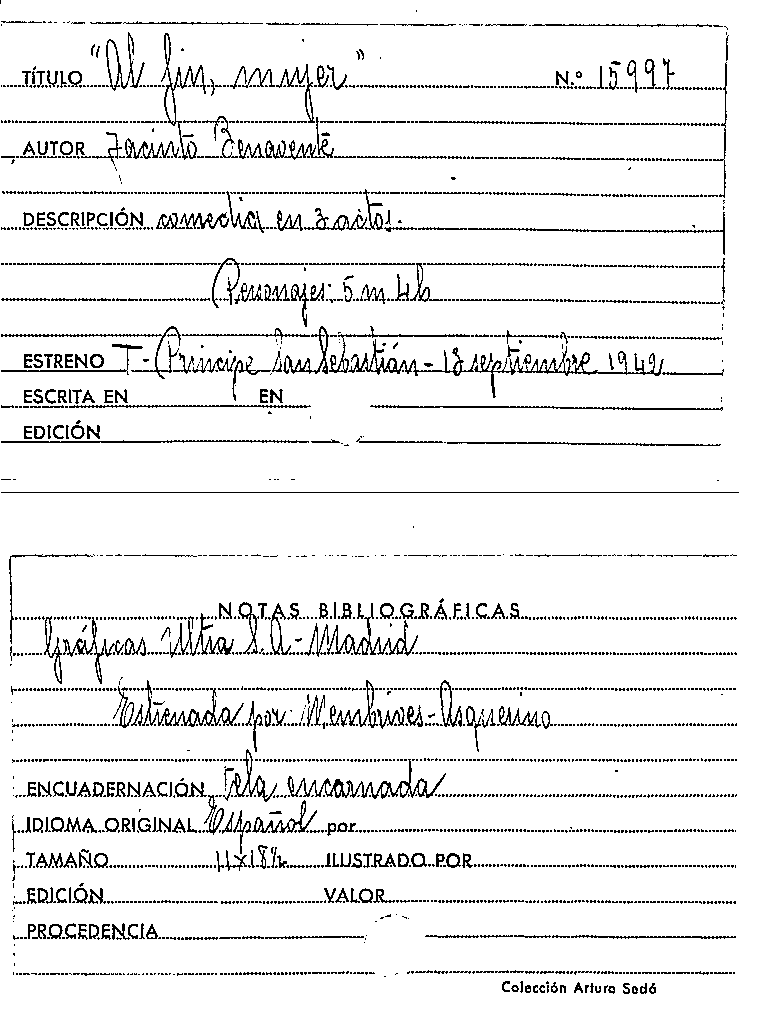 TÍTULO "Al fin, mujer" N.º 15997
AUTOR Jacinto Benavente
DESCRIPCIÓN comedia en 3 actos.
Personajes: 5 m 4 h
ESTRENO T- Príncipe San Sebastián - 13 septiembre 1942
ESCRITA EN EN
EDICIÓN
NOTAS BIBLIOGRÁFICAS
Gráficas Ultra S.A - Madrid
Estrenada por: Membrives - Asquerino
ENCUADERNACIÓN tela encarnada
IDIOMA ORIGINAL Español por
TAMAÑO 11x18½ ILUSTRADO POR
EDICIÓN VALOR
PROCEDENCIA
Colección Arturo Sedó